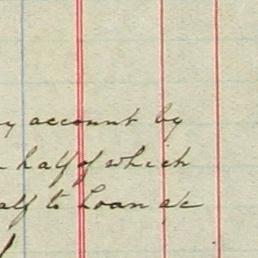 y account by
half of which
alf to Loan a/c